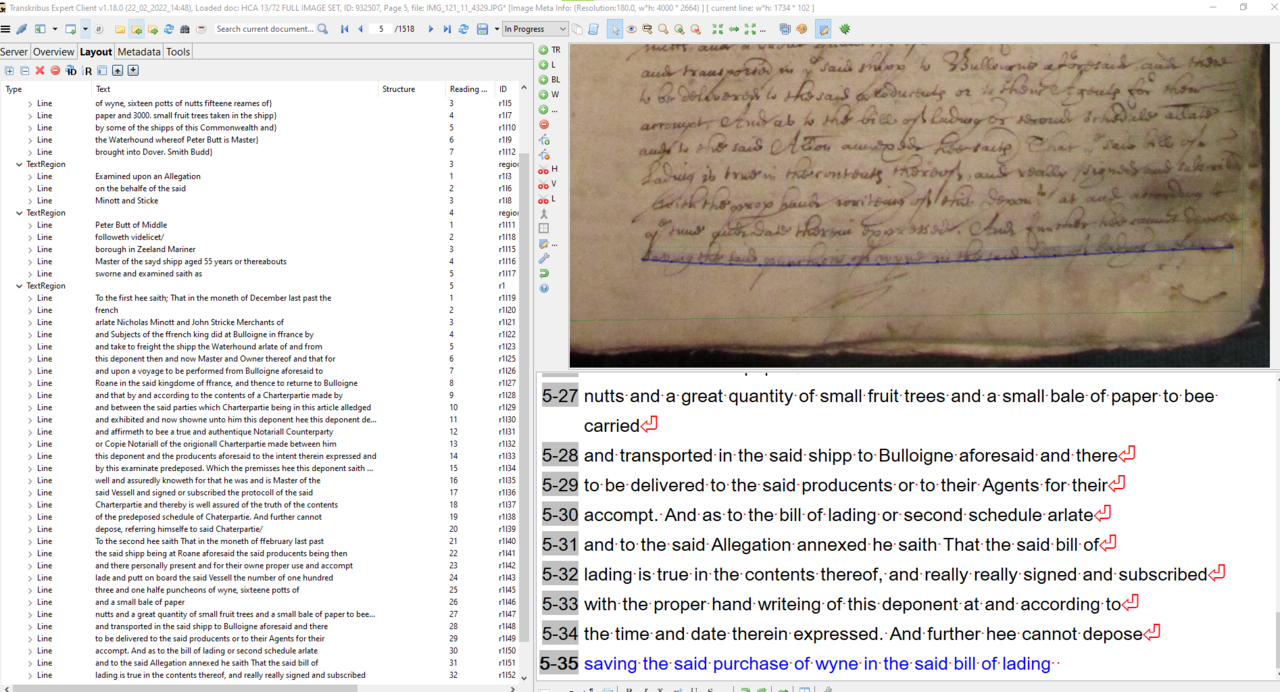 Transkribus Expert Client v1.18.0 (22_02_2022_14:48), Loaded doc: HCA 13/72 FULL IMAGE SET, ID: 932507, Page 5, file: IMG_121_11_4329.JPG* [Image Meta Info: (Resolution:180.0, w*h: 4000 * 2664) ] [ current line: w*h: 1734 * 102 ]
Search current document... 5 /1518 In Progress
Server Overview Layout Metadata Tools
Type Text Structure Reading ... ID
Line of wyne, sixteen potts of nutts fifteene reames of} 3 r1l5
Line paper and 3000. small fruit trees taken in the shipp} 4 r1l7
Line by some of the shipps of this Commonwealth and} 5 r1l10
Line the Waterhound whereof Peter Butt is Master} 6 r1l9
Line brought into Dover. Smith Budd} 7 r1l12
TextRegion 3 regio
Line Examined upon an Allegation 1 r1l3
Line on the behalfe of the said 2 r1l6
Line Minott and Sticke 3 r1l8
TextRegion 4 regio
Line Peter Butt of Middle 1 r1l11
Line followeth videlicet/ 2 r1l18
Line borough in Zeeland Mariner 3 r1l15
Line Master of the sayd shipp aged 55 years or thereabouts 4 r1l16
Line sworne and examined saith as 5 r1l17
TextRegion 5 r1
Line To the first hee saith; That in the moneth of December last past the 1 r1l19
Line french 2 r1l20
Line arlate Nicholas Minott and John Stricke Merchants of 3 r1l21
Line and Subjects of the ffrench king did at Bulloigne in ffrance by 4 r1l22
Line and take to freight the shipp the Waterhound arlate of and from 5 r1l23
Line this deponent then and now Master and Owner thereof and that for 6 r1l25
Line and upon a voyage to be performed from Bulloigne aforesaid to 7 r1l26
Line Roane in the said kingdome of ffrance, and thence to returne to Bulloigne 8 r1l27
Line and that by and according to the contents of a Charterpartie made by 9 r1l28
Line and between the said parties which Charterpartie being in this article alledged 10 r1l29
Line and exhibited and now showne unto him this deponent hee this deponent de... 11 r1l30
Line and affirmeth to bee a true and authentique Notariall Counterparty 12 r1l31
Line or Copie Notariall of the origionall Charterpartie made between him 13 r1l32
Line this deponent and the producents aforesaid to the intent therein expressed and 14 r1l33
Line by this examinate predeposed. Which the premisses hee this deponent saith ... 15 r1l34
Line well and assuredly knoweth for that he was and is Master of the 16 r1l35
Line said Vessell and signed or subscribed the protocoll of the said 17 r1l36
Line Charterpartie and thereby is well assured of the truth of the contents 18 r1l37
Line of the predeposed schedule of Chaterpartie. And further cannot 19 r1l38
Line depose, referring himselfe to said Chaterpartie/ 20 r1l39
Line To the second hee saith That in the moneth of ffebruary last past 21 r1l40
Line the said shipp being at Roane aforesaid the said producents being then 22 r1l41
Line and there personally present and for their owne proper use and accompt 23 r1l42
Line lade and putt on board the said Vessell the number of one hundred 24 r1l43
Line three and one halfe puncheons of wyne, sixteene potts of 25 r1l45
Line and a small bale of paper 26 r1l46
Line nutts and a great quantity of small fruit trees and a small bale of paper to bee... 27 r1l47
Line and transported in the said shipp to Bulloigne aforesaid and there 28 r1l48
Line to be delivered to the said producents or to their Agents for their 29 r1l49
Line accompt. And as to the bill of lading or second schedule arlate 30 r1l50
Line and to the said Allegation annexed he saith That the said bill of 31 r1l51
Line lading is true in the contents thereof, and really really signed and subscribed 32 r1l52
TR
L
BL
W
...
H
V
L
...
and transported in ye said shipp to Bulloigne aforesaid and there
to be delivered to the said producents or to their Agents for their
accompt. And as to the bill of lading or second schedule arlate
and to the said Allegation annexed hee saith That ye said bill of
lading is true in the contents thereof, and really signed and subscribed
with the proper hand writeing of this deponent at and according
ye time and date therein expressed. And further hee cannot depose
saving the said puncheons of wyne in the said bill of lading
5-27 nutts and a great quantity of small fruit trees and a small bale of paper to bee
carried
5-28 and transported in the said shipp to Bulloigne aforesaid and there
5-29 to be delivered to the said producents or to their Agents for their
5-30 accompt. And as to the bill of lading or second schedule arlate
5-31 and to the said Allegation annexed he saith That the said bill of
5-32 lading is true in the contents thereof, and really really signed and subscribed
5-33 with the proper hand writeing of this deponent at and according to
5-34 the time and date therein expressed. And further hee cannot depose
5-35 saving the said purchase of wyne in the said bill of lading